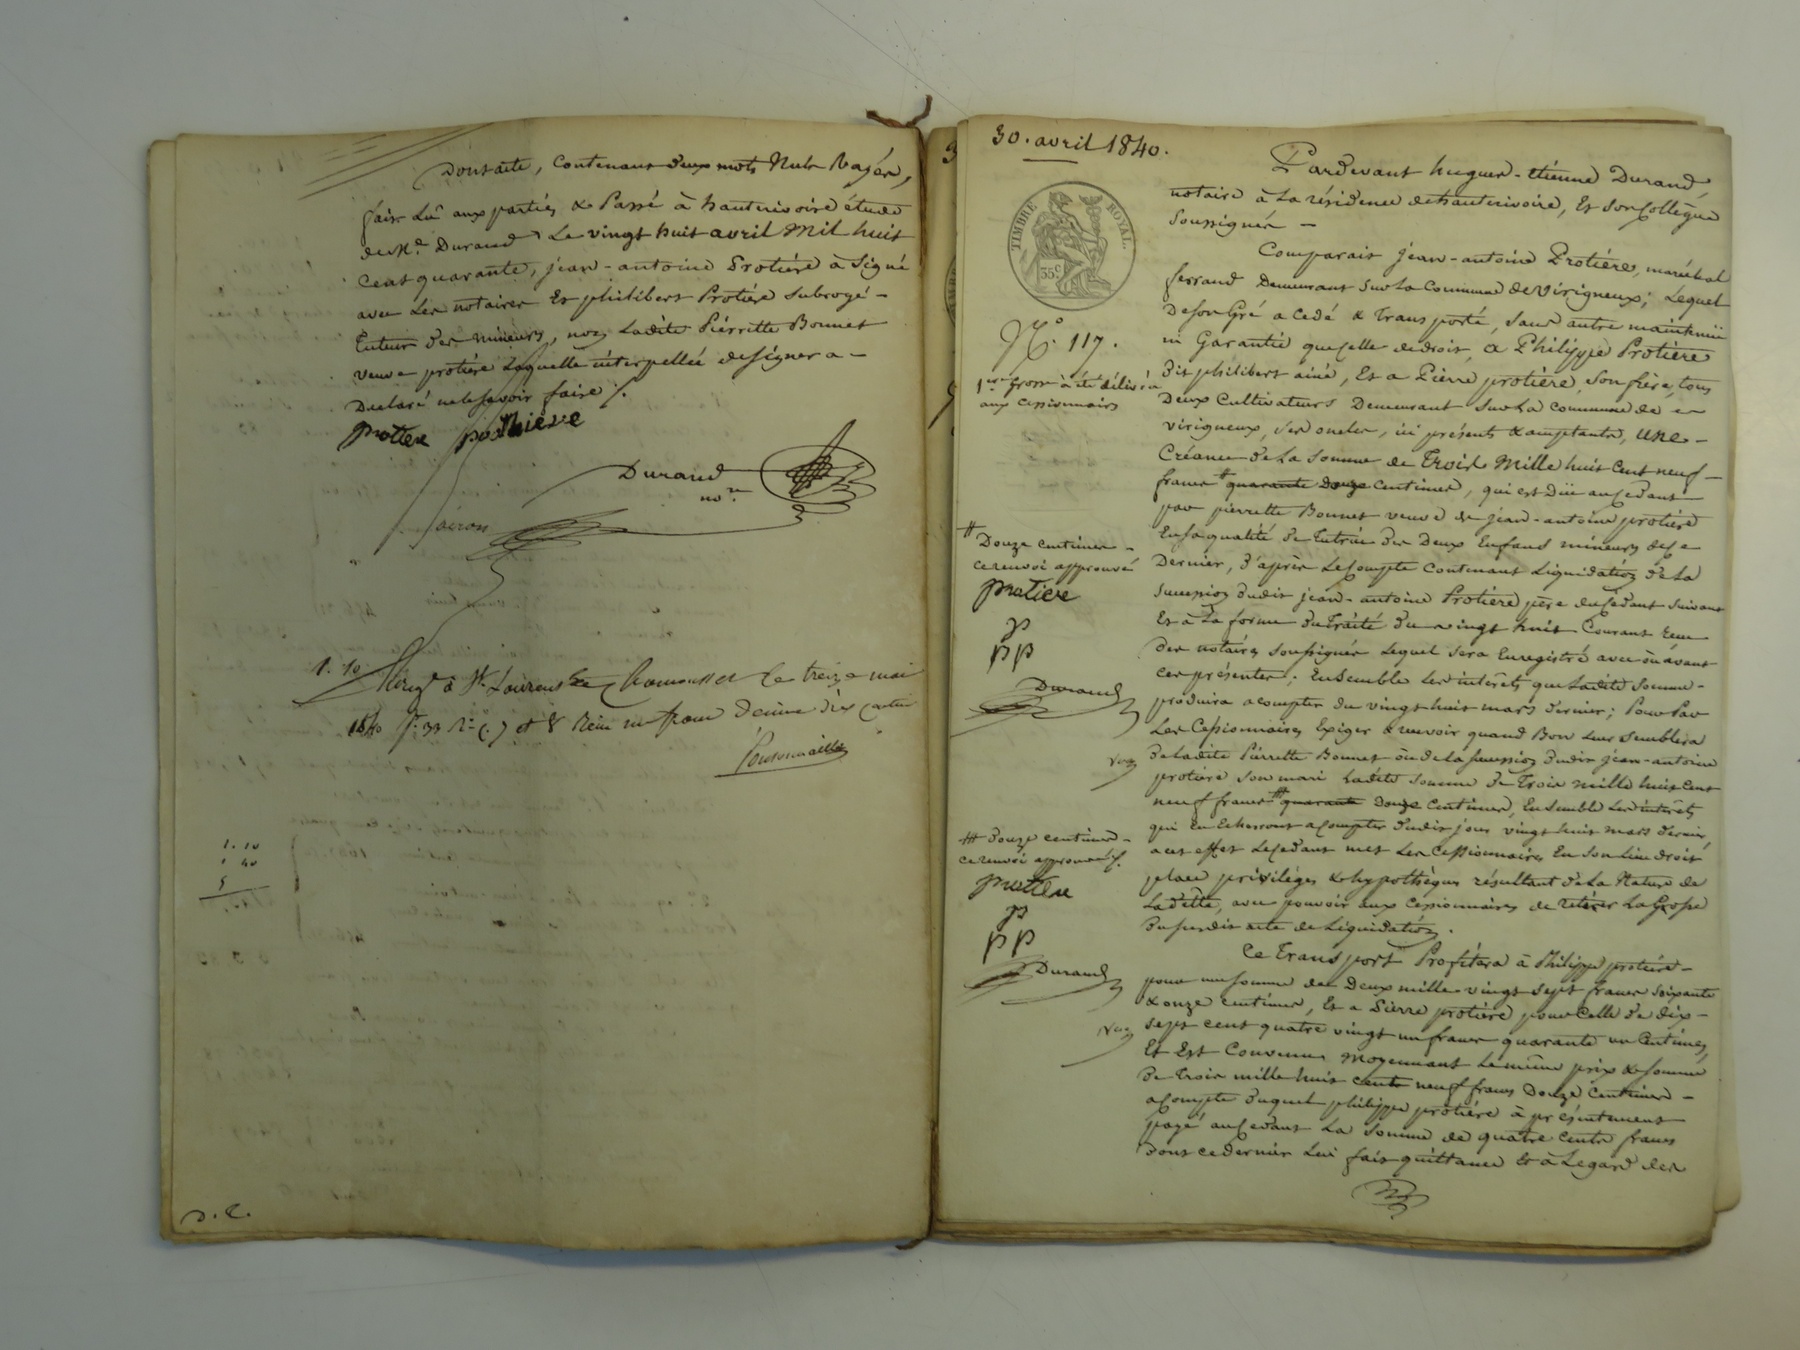 Dont acte, Contenant deux mots Nuls Rayés,
fait Lu aux parties & Passé à hauterivoire étude
de Me. Durand Le vingt huit avril Mil huit
Cent quarante, jean-antoine Protière à Signé
avec Les notaires Et philibert Protière Subrogé-
Tuteur des mineurs, non Ladite Pierrette Bonnet
veuve protière Laquelle interpellée de Signer a
Déclaré ne le Savoir faire /.
protière prothière
Durand
nore
1. 10
Enregé à St. Laurent de Chamousset Le treize mai
1840 fo. 33 Ro. C. 7 et 8 Reçu un franc dixième dix centimes
1. 10
1 40
5
D. C.
30. avril 1840.
TIMBRE ROYAL.
35c
No. 117.
1ere grosse à été délivrée
aux Cessionnaires
Pardevant hugues-étienne Durand,
notaire à La résidence de hauterivoire, Et Son Collègue
Soussignés -
Comparait jean-antoine Protière, maréchal
ferrand Demeurant Sur La Commune de Virigneux; Lequel
De Son Gré a Cédé & Transporté, Sans autre
ni Garantie que celle de droit, a Philippe Protière
Dit philibert ainé, Et a Pierre protière, Son frère, tous
Deux Cultivateurs Demeurant Sur La Commune de
virigneux, Ses oncles, ici présents & acceptants, une
Créance de La Somme de Trois Mille huit Cent neuf
francs # quarante Douze Centimes, qui est Düe au Cédant
par pierrette Bonnet veuve de jean-antoine protière
En Sa qualité de Tutrice Des Deux Enfans mineurs de Ce
Dernier, D'après Le Compte Contenant Liquidation De La
Succession dudit jean-antoine Protière père du Cédant Suivant
Et à La forme du Traité Du vingt huit Courant Reçu
Des notaires Soussignés Lequel Sera Enregistré avec ou avant
Ces présentes; Ensemble Les intérêts que Ladite Somme
produira a Compter du vingt huit mars Dernier; Pour Par
Les Cessionnaires Exiger & recevoir quand Bon Leur Semblera
De Ladite Pierrette Bonnet ou de La Succession Dudit jean-antoine
protière Son mari Ladite Somme De Trois mille huit Cent
neuf francs # quarante Douze Centimes, Ensemble Les intérêts
qui En Echerront a Compter Dudit jour vingt huit mars Dernier,
a cet effet Le Cédant met Les Cessionnaires En Son Lieu droit
place privilèges & hypothèques résultant De La Nature de
La dette, avec pouvoir aux Cessionnaires de retirer La Grosse
Du Susdit acte de Liquidation.
Ce Transport Profitera à Philippe protière
pour une Somme de Deux mille vingt Sept francs Soixante
& onze Centimes, Et a Pierre protière pour Celle De dix-
Sept cent quatre vingt un francs quarante un Centimes,
Et Est Convenu Moyennant Le même prix & Somme
De Trois mille huit cents neuf francs Douze Centimes
a Compte Duquel philippe protière à présentement
payé au Cédant La Somme de quatre Cents francs
Dont ce dernier Lui fait quittance Et à L'égard des
# Douze centimes
ce renvoi approuvé
protière
P
PP
Durand
# Douze centimes
ce renvoi approuvé /.
protière
P
PP
Durand